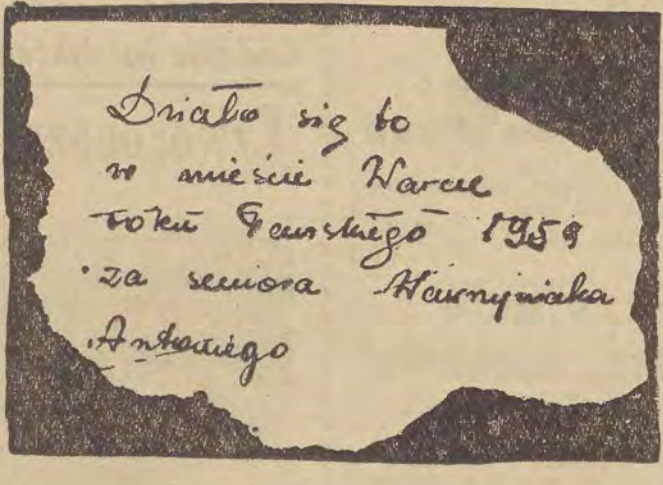 Działo się to
w mieście Warcie
roku Pańskiego 1959
za seniora Wawrzyniaka
Antoniego